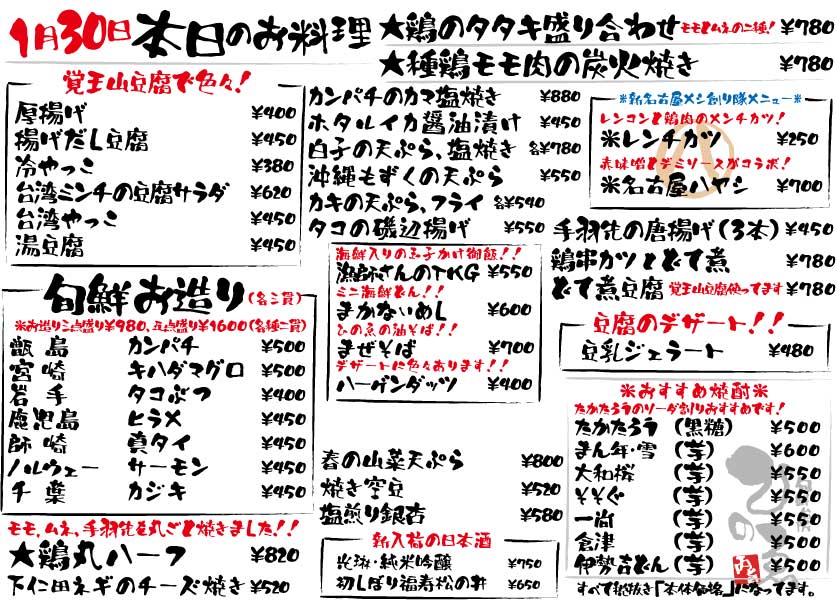 1月30日 本日のお料理
★鶏のタタキ盛り合わせ モモとムネの二種! ¥780
★種鶏モモ肉の炭火焼き ¥780
覚王山豆腐で色々!
厚揚げ ¥400
揚げだし豆腐 ¥450
冷やっこ ¥380
台湾ミンチの豆腐サラダ ¥620
台湾やっこ ¥450
湯豆腐 ¥450
カンパチのカマ塩焼き ¥880
ホタルイカ醤油漬け ¥450
白子の天ぷら、塩焼き 各¥780
沖縄もずくの天ぷら ¥550
カキの天ぷら、フライ 各¥540
タコの磯辺揚げ ¥550
※新名古屋メシ創り隊メニュー※
レンコンと鶏肉のメンチカツ!
※レンチカツ ¥250
赤味噌とデミソースがコラボ!
※名古屋ハヤシ ¥700
手羽先の唐揚げ(3本) ¥450
鶏串カツとどて煮 ¥780
どて煮豆腐 覚王山豆腐使ってます ¥780
旬鮮お造り(各三貫)
※お造り三点盛り¥980、五点盛り¥1600(各種二貫)
甑島 カンパチ ¥500
宮崎 キハダマグロ ¥500
岩手 タコぶつ ¥400
鹿児島 ヒラメ ¥450
師崎 真タイ ¥450
ノルウェー サーモン ¥450
千葉 カジキ ¥450
海鮮入りの玉子かけ御飯!!
漁師さんのTKG ¥550
ミニ海鮮どん!!
まかないめし ¥600
ひの魚の油そば!!
まぜそば ¥700
デザートに色々あります!!
ハーゲンダッツ ¥400
豆腐のデザート!!
豆乳ジェラート ¥480
春の山菜天ぷら ¥800
焼き空豆 ¥520
塩煎り銀杏 ¥580
※おすすめ焼酎※
たかたろうのソーダ割りおすすめです!
たかたろう (黒糖) ¥500
まん年・雪 (芋) ¥600
大和桜 (芋) ¥550
そそぐ (芋) ¥550
一尚 (芋) ¥550
倉津 (芋) ¥550
伊勢吉どん (芋) ¥550
すべて税抜き「本体価格」になってます。
モモ、ムネ、手羽先を丸ごと焼きました!!
★鶏丸ハーフ ¥820
下仁田ネギのチーズ焼き ¥520
新入荷の日本酒
純米吟醸 ¥750
初しぼり福寿松の井 ¥650